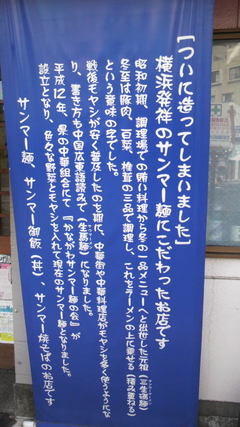 「ついに造ってしまいました」
横浜発祥のサンマー麺にこだわったお店です
昭和初期、調理場での賄い料理から冬の一品メニューへと出世した元祖
冬至は豚肉、白菜、椎茸の三品で調理し、これをラーメンの上に乗せる(積み重ねる)
という意味の字でした。
戦後モヤシが安く普及したのを期に、中華街や中華料理店がモヤシを多く使うようにな
り、書き方も中国広東語読みで(生馬麺)になりました。
平成12年、県の中華組合にて『かながわサンマー麺の会』が
設立となり、色々な野菜とモヤシを入れて現在のサンマー麺となりました。
サンマー麺、サンマー御飯(丼)、サンマー焼そばのお店です